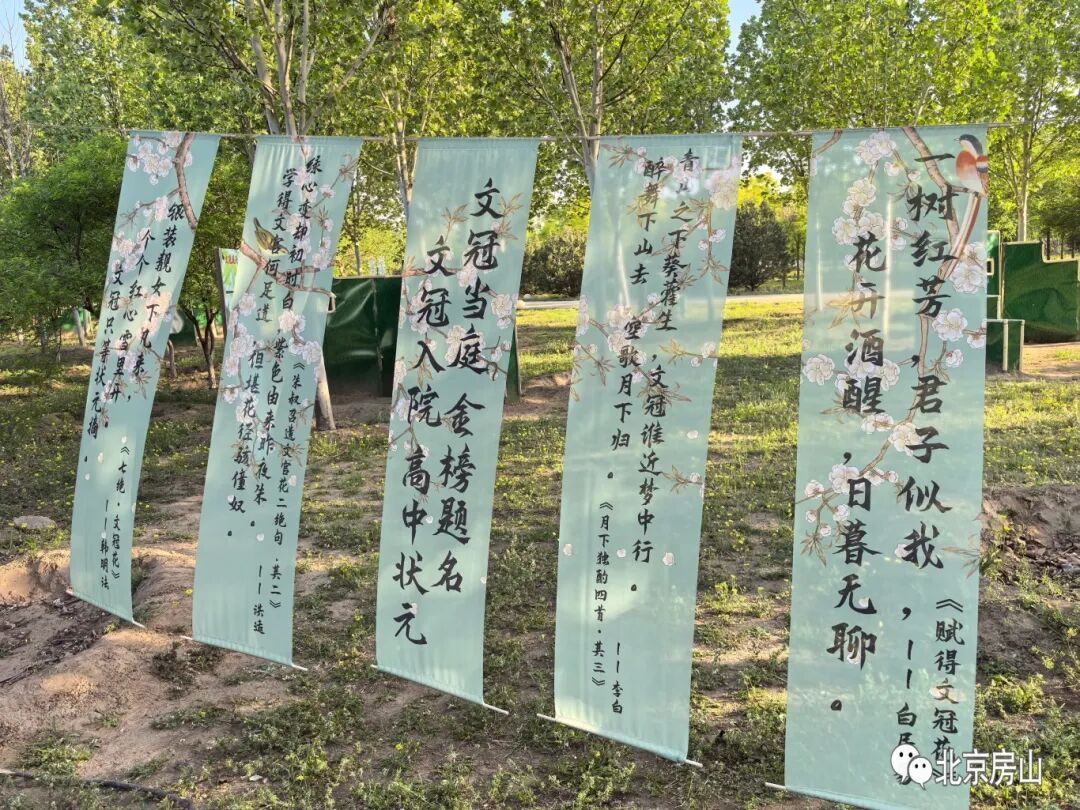 一树红芳，君子似我，
花开酒醒，日暮无聊。
《赋得文冠花
——白居
青山之下葵藿生，文冠谁近梦中行。
醉舞下山去 空歌月下归。
《月下独酌四首·其三》
——李白
文冠当庭 金榜题名
文冠入院 高中状元
心变却初时白 紫色由来昨夜朱。
学得文客何足道 但堪花径 僮奴。
《朱叔召送文官花二绝句·其二》
——洪适
银装靓女下凡来，
个个红心雪里开
文冠只等状元摘。
《七绝·文冠花》
——韩明法
北京房山